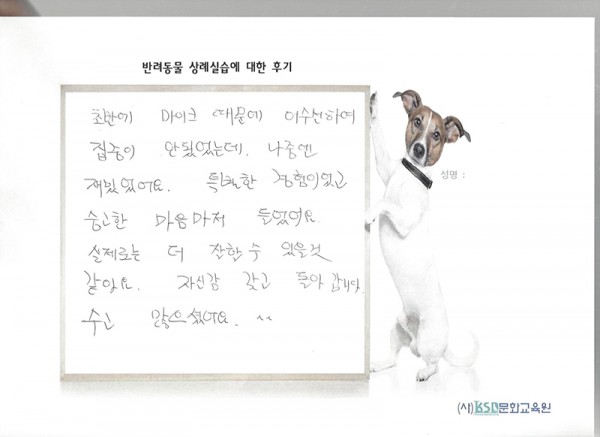 반려동물 상례실습에 대한 후기
초반에 마이크 때문에 어수선하여
집중이 안됬었는데. 나중엔
재밌었어요. 특별한 경험이었고
숭고한 마음마저 들었어요
실제로는 더 잘할수 있을것
같아요. 자신감 갖고 돌아 갑니다
수고 많으셨어요. ^^
성명 :
(사)KSD문화교육원